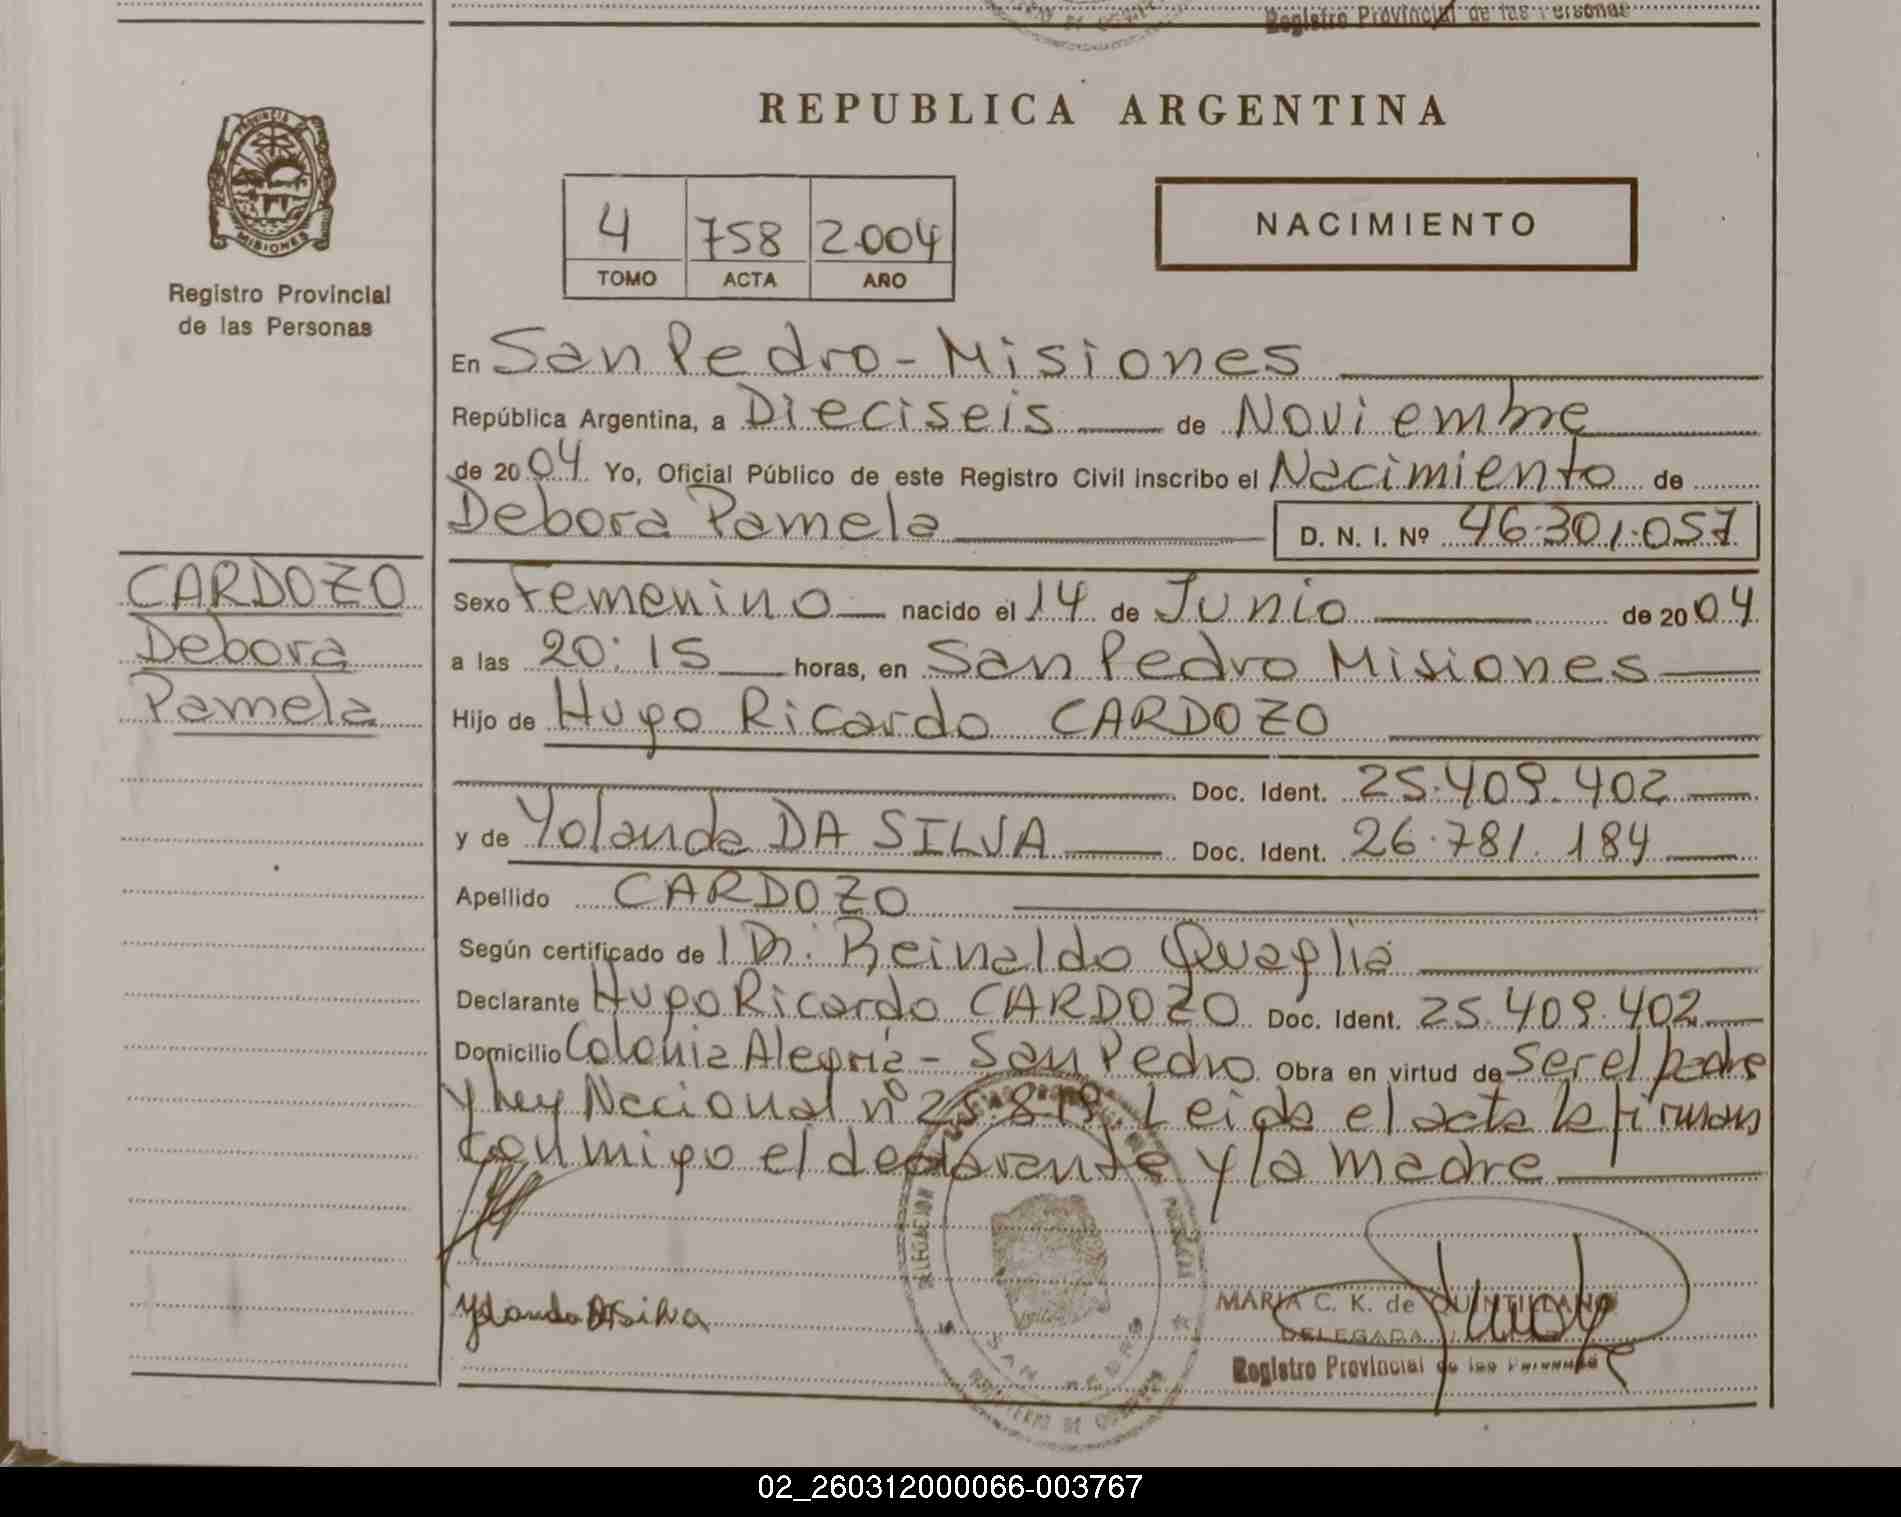 Registro Provincial de las Personas
REPUBLICA ARGENTINA
PROVINCIA DE
MISIONES
Registro Provincial
de las Personas
4 758 2.004
TOMO ACTA AÑO
NACIMIENTO
En San Pedro - Misiones
República Argentina, a Dieciseis de Noviembre
de 20 04 Yo, Oficial Público de este Registro Civil inscribo el Nacimiento de
Debora Pamela D. N. I. Nº 46.301.057
CARDOZO
Debora
Pamela
Sexo Femenino nacido el 14 de Junio de 20 04
a las 20:15 horas, en San Pedro Misiones
Hijo de Hugo Ricardo CARDOZO
Doc. Ident. 25.409.402
y de Yolanda DA SILVA Doc. Ident. 26.781.184
Apellido CARDOZO
Según certificado de l Dr. Reinaldo Quaglia
Declarante Hugo Ricardo CARDOZO Doc. Ident. 25.409.402
Domicilio Colonia Alegría - San Pedro Obra en virtud de ser el padre
y Ley Nacional nº 25.819. Leida el acta la firman
conmigo el declarante y la madre
DELEGACION
SAN PEDRO
Yolanda Da silva
MARIA C. K. de QUINTILLANO
DELEGADA
Registro Provincial de las Personas
02_260312000066-003767